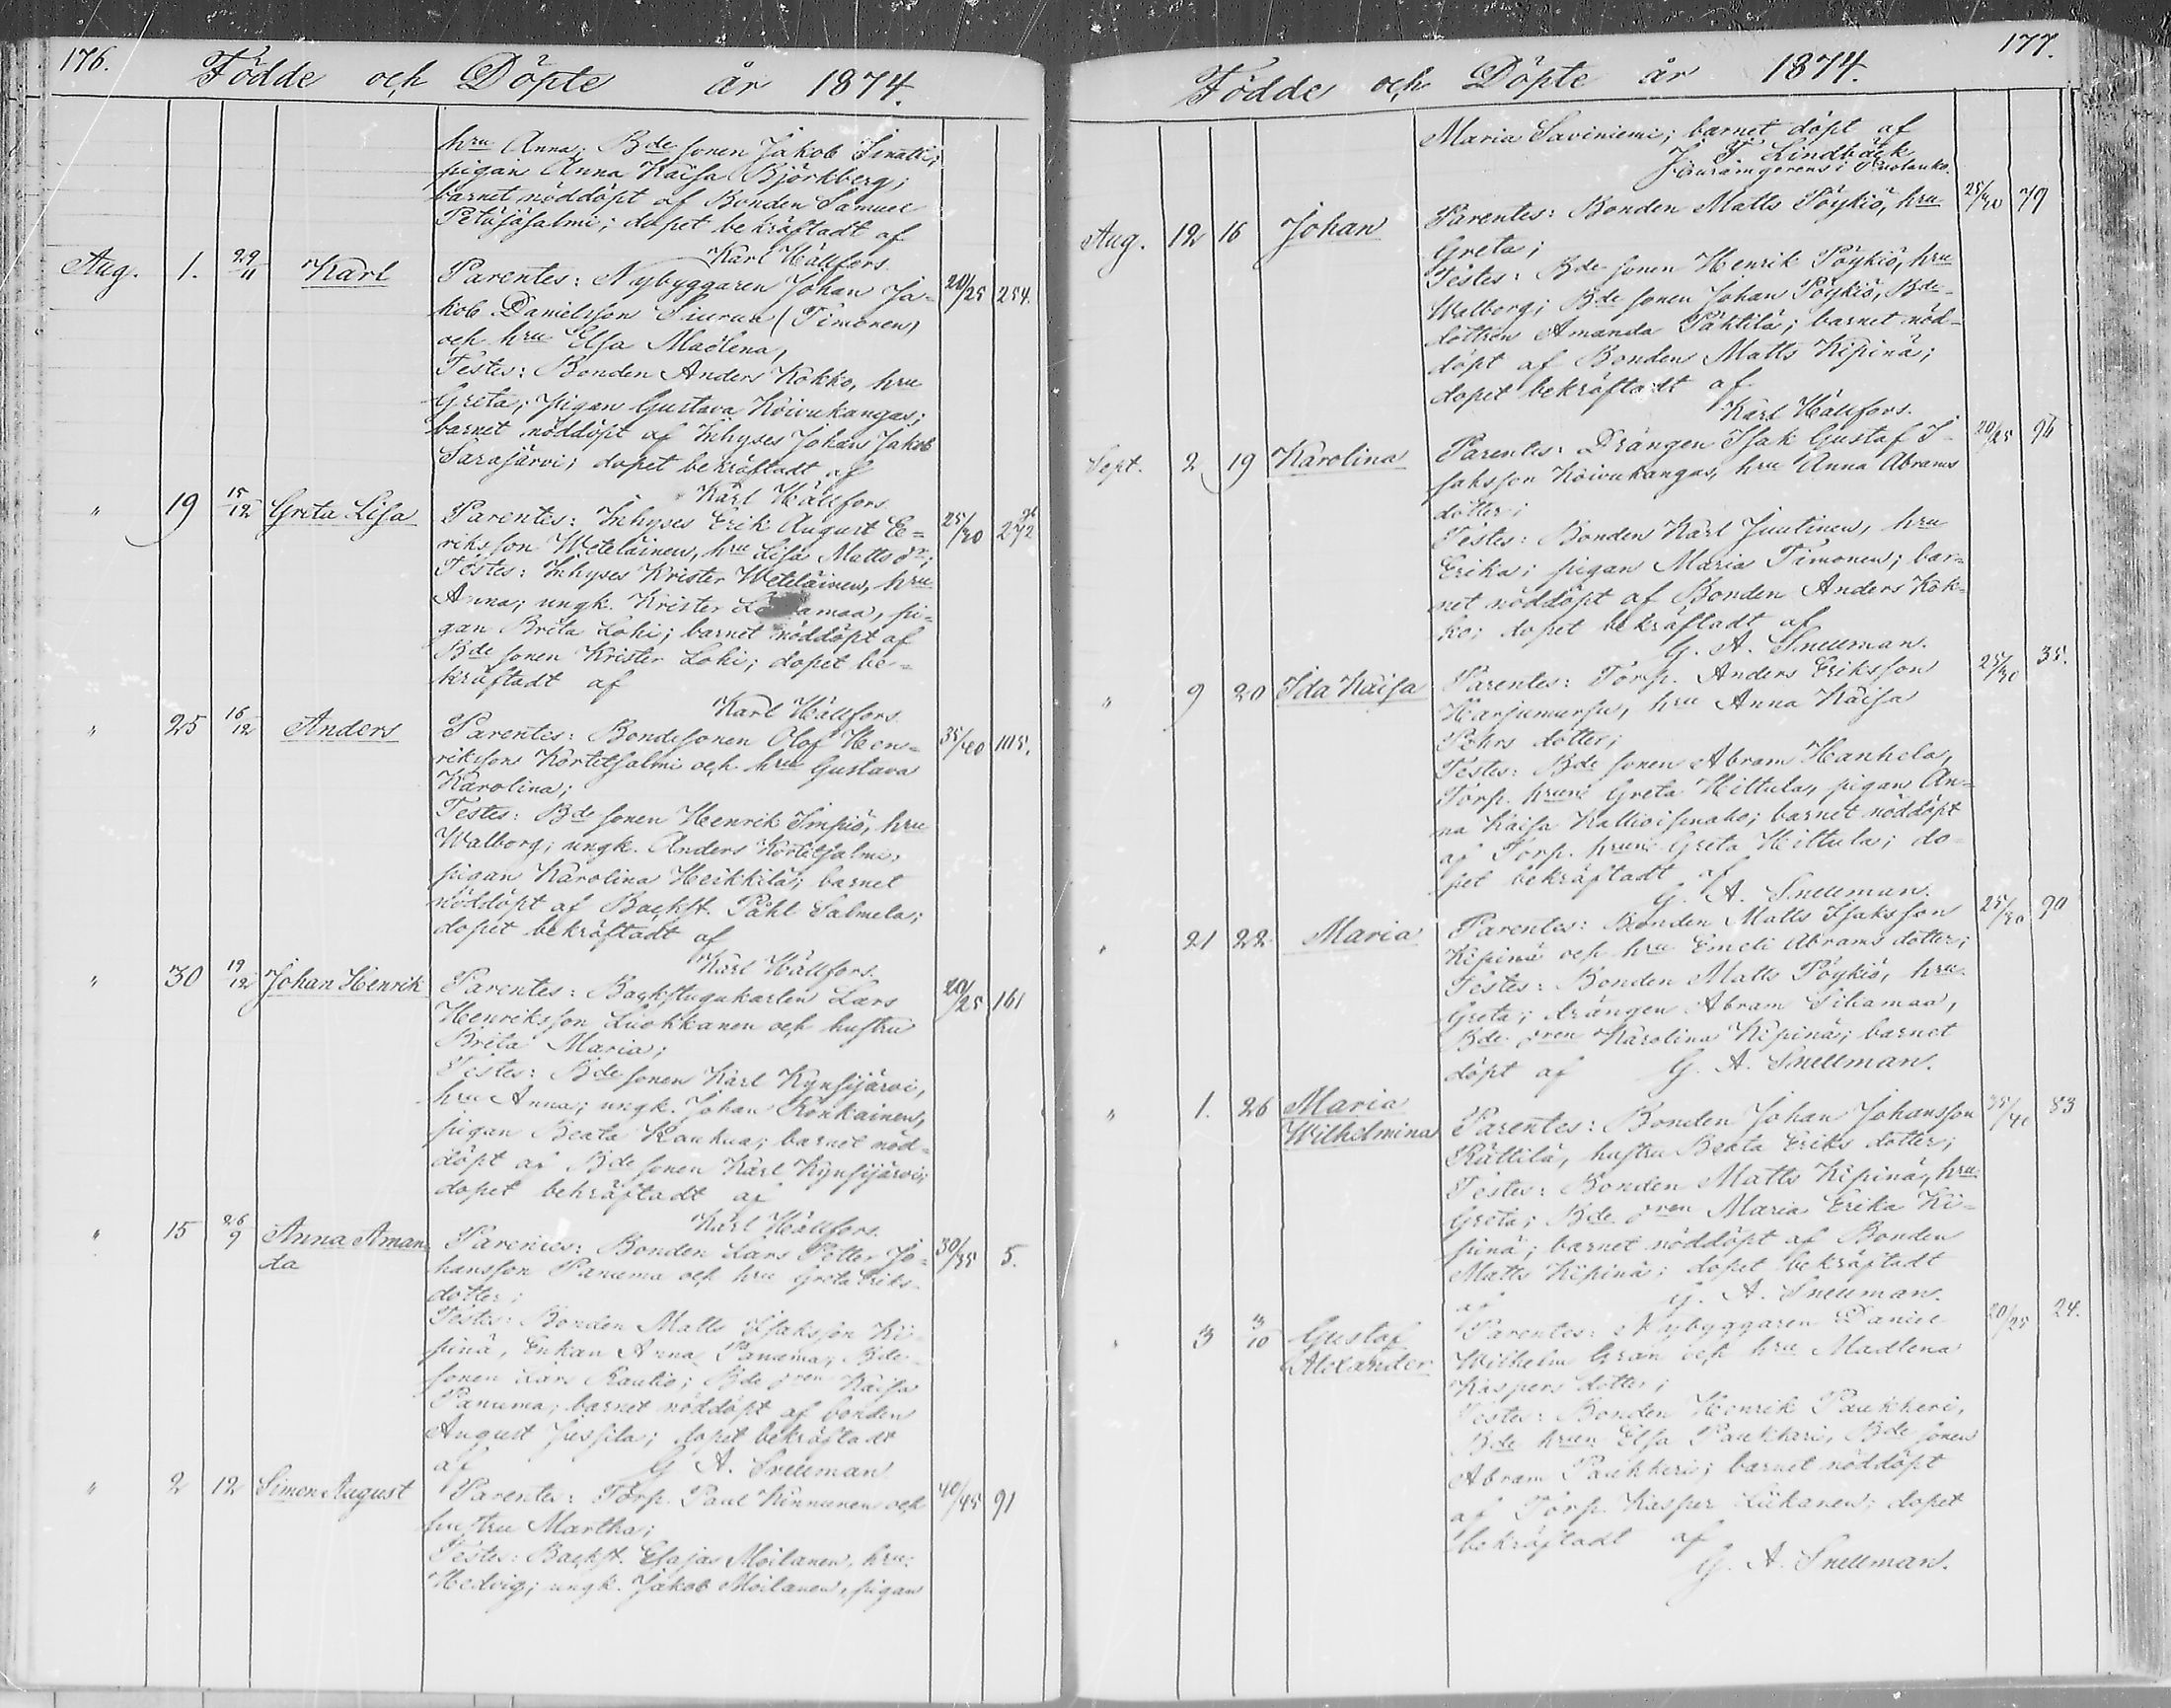 176.
Födde och Döpte år 1874.
hru Anna; Bde sonen Jakob Sinatti;
pigan Anna Kaisa Björkberg;
barnet nöddöpt af Bonden Samuel
Petäjäsalmi; dopet bekräftadt af
Karl Hällfors.
Aug. 1. 29/11 Karl Parentes: Nybyggaren Johan Ja- 20/25 254.
kob Danielsson Siurua (Timonen)
och hru Elsa Madlena,
Testes: Bonden Anders Kokko, hru
Greta; pigan Gustava Koivukangas;
barnet nöddöpt af Inhyses Johan Jakob
Sarajärvi; dopet bekräftadt af
Karl Hällfors
" 19 15/12 Greta Lisa Parentes: Inhyses Erik August E= 25/30 272
riksson Weteläinen, hru Lisa Matts dr;
Testes: Inhyses Krister Weteläinen, hru
Anna; ungk. Krister amaa, pi-
gan Brita Lohi; barnet nöddöpt af
Bde sonen Krister Lohi; dopet be-
kräftadt af
Karl Hällfors.
" 25 16/12 Anders Parentes: Bondesonen Olof Hen= 35/40 115.
riksson Kortetsalmi och hru Gustava
Karolina;
Testes: Bde sonen Henrik Impiö, hru
Walborg; ungk. Anders Kortetsalmi,
pigan Karolina Heikkilä; barnet
nöddöpt af Backst. Påhl Salmela;
dopet bekräftadt af
Karl Hällfors.
" 30 19/12 Johan Henrik Parentes: Backstugukarlen Lars 20/25 161
Henriksson Luokkanen och hustru
Brita Maria;
Testes: Bde sonen Karl Kynsijärvi,
hru Anna; ungk. Johan Ronkainen,
pigan Beata Raukua; barnet nöd=
döpt af Bde sonen Karl Kynsijärvi;
dopet bekräftadt af
Karl Hällfors.
" 15 26/9 Anna Aman- Parentes: Bonden Lars Petter Jo- 30/35 5.
da hansson Panuma och hru Greta Eriks-
dotter;
Testes: Bonden Matts Isaksson Ki-
pinä, Enkan Anna Panuma; Bde
sonen Lars Rautio; Bde dren Kaisa
Panuma; barnet nöddöpt af bonden
August Jussila; dopet bekräftadt
af G. A. Snellman
" 2 12 Simon August Parentes: Torp. Paul Kinnunen och 40/45 91
hustru Martha;
Testes: Backst. Esajas Moilanen, hru
Hedvig; ungk. Jakob Moilanen, pigan
177.
Födde och Döpte år 1874.
Maria Saviniemi; barnet döpt af
J. F. Lindbäck
Jourangerens i Puolanko.
Aug. 12 16 Johan Parentes: Bonden Matts Pöykiö, hru 25/30 79
Greta;
Testes: Bde sonen Henrik Pöykiö, hru
Walborg; Bde sonen Johan Pöykiö, Bde-
dottren Amanda Pähtilä; barnet nöd-
döpt af Bonden Matts Kipinä;
dopet bekräftadt af
Karl Hällfors.
Sept. 2 19 Karolina Parentes: Drängen Isak Gustaf I- 20/25 96
saksson Koivukangas, hru Anna Abrams
dotter;
Testes: Bonden Karl Juutinen, hru
Erika; pigan Maria Timonen; bar-
net nöddöpt af Bonden Anders Kok-
ko; dopet bekräftadt af
G. A. Snellman.
" 9 20 Ida Kaisa Parentes: Torp. Anders Eriksson 25/30 35.
Harjumursu, hru Anna Kaisa
Pehrs dotter;
Testes: Bde sonen Abram Hanhela,
Torp. hrun Greta Hiltula, pigan An-
na Kaisa Kallioisenaho; barnet nöddöpt
af Torp. hrun Greta Hiltula; do-
pet bekräftadt af
G. A. Snellman.
" 21 22 Maria Parentes: Bonden Matts Isaksson 25/30 90
Kipinä och hru Emeli Abrams dotter;
Testes: Bonden Matts Pöykiö, hru
Greta; drängen Abram Siliamaa,
Bde dren Karolina Kipinä; barnet
döpt af G. A. Snellman.
" 1. 26 Maria
Wilhelmina Parentes: Bonden Johan Johansson 35/40 83
Rättilä, hustru Beata Eriks dotter;
Testes: Bonden Matts Kipinä, hru
Greta; Bde dren Maria Erika Ki-
pinä; barnet nöddöpt af Bonden
Matts Kipinä; dopet bekräftadt
af G. A. Snellman.
" 3 3/10 Gustaf Parentes: Nybyggaren Daniel 20/25 24.
Alexander Wilhelm Gran och hru Madlena
Kaspers dotter;
Testes: Bonden Henrik Paukkeri,
Bde hrun Elsa Paukkeri, Bde sonen
Abram Paukkeri; barnet nöddöpt
af Torp. Kasper Liikanen; dopet
bekräftadt af
G. A. Snellman.